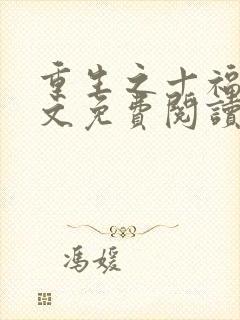 重生之十福
文免費閱讀
馮媛